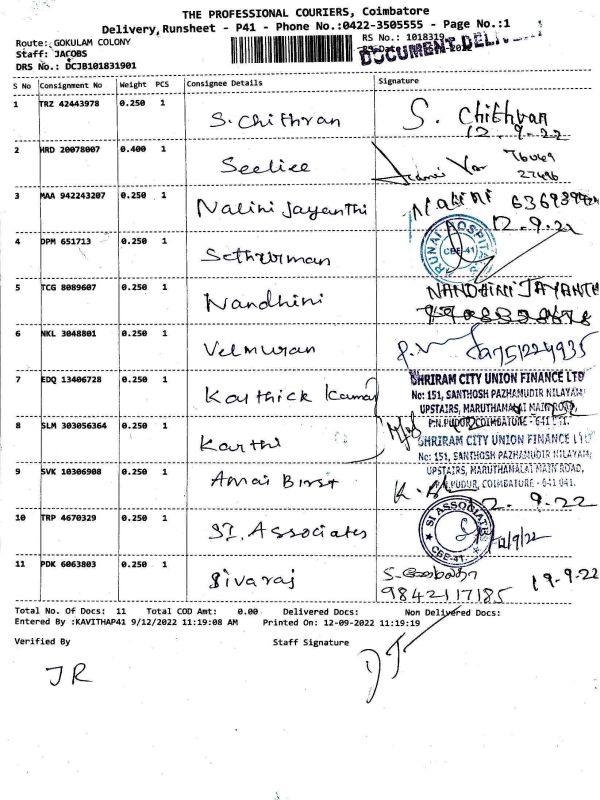 THE PROFESSIONAL COURIERS, Coimbatore
Delivery,Runsheet - P41 - Phone No.:0422-3505555 - Page No.:1
Route: GOKULAM COLONY
RS No.: 1018319
Staff: JACOBS
DOCUMENT DELIV
DRS No.: DCJB101831901
S No Consignment No Weight PCS Consignee Details Signature
1 TRZ 42443978 0.250 1 S.Chithran S. Chithran
12.9.22
2 HRD 20078007 0.400 1
3 MAA 942243207 0.250 1 Nalini Jayanthi Nalini
12.9.22
4 DPM 651713 0.250 1
CBE-41
5 TCG 8089607 0.250 1 Nandhini NANDHINI JAYANTH
6 NKL 3048801 0.250 1 Velmuran
7 EDQ 13406728 0.250 1 Karthick Kumar
SHRIRAM CITY UNION FINANCE LTD
No: 151, SANTHOSH PAZHAMUDIR NILAYAM
UPSTAIRS, MARUTHAMALAI MAIN ROAD,
P.N.PUDUR, COIMBATORE - 641 041.
8 SLM 303056364 0.250 1 Karthi
SHRIRAM CITY UNION FINANCE LTD
No: 151, SANTHOSH PAZHAMUDIR NILAYAM,
UPSTAIRS, MARUTHAMALAI MAIN ROAD,
P.N.PUDUR, COIMBATORE - 641 041.
9 SVK 10306908 0.250 1
12.9.22
10 TRP 4670329 0.250 1 SI. Associates
SI ASSOCIATES
CBE-41
12/9/22
11 PDK 6063803 0.250 1 Sivaraj
9842117185 19-9.22
Total No. Of Docs: 11 Total COD Amt: 0.00 Delivered Docs: Non Delivered Docs:
Entered By :KAVITHAP41 9/12/2022 11:19:08 AM Printed On: 12-09-2022 11:19:19
Verified By Staff Signature
JR